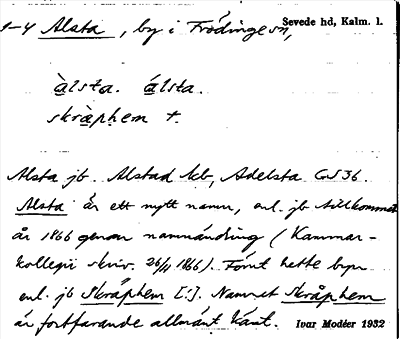 1-4 Alsta, by i Frödinge sn, Sevede hd, Kalm. l.
àlsta. álsta.
skràphem †.
Alsta jb. Alstad kb, Adelsta GS 36.
Alsta är ett nytt namn, enl. jb tillkommet
år 1866 genom namnändring (Kammar-
kollegii skriv. 26/11 1866). Förut hette byn
enl. jb Skråphem [:]. Namnet Skråphem
är fortfarande allmänt känt. Ivar Modéer 1932